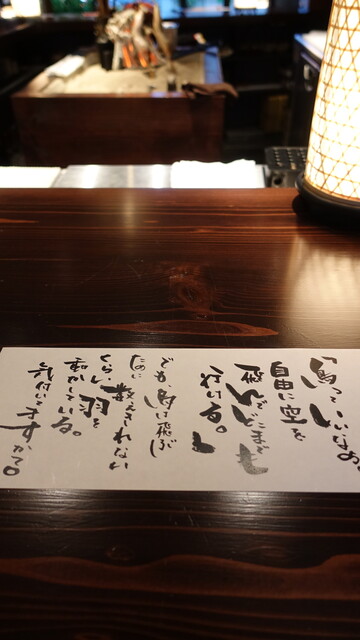 「鳥っていいなぁ
自由に空を
飛んでどこまでも
行ける。」
でも、鳥は飛ぶ
ために
数えきれない
くらい羽を
動かしている。
気付いてますか?